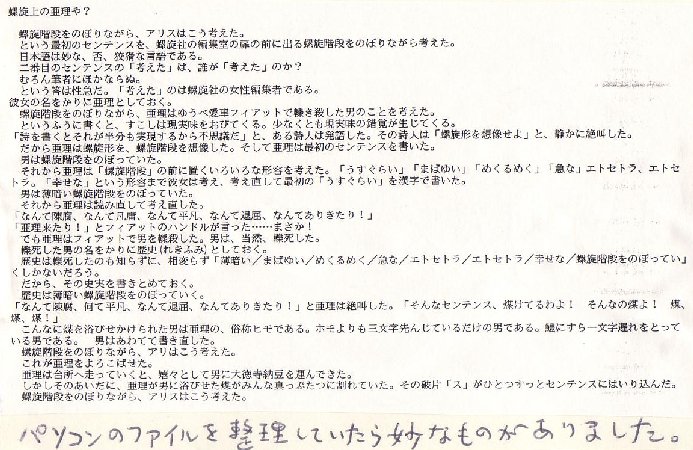 螺旋上の亜理や?
螺旋階段をのぼりながら、アリスはこう考えた。
という最初のセンテンスを、螺旋社の編集室の扉の前に出る螺旋階段をのぼりながら考えた。
日本語は妙な、否、狡猾な言語である。
二番目のセンテンスの「考えた」は、誰が「考えた」のか?
むろん筆者にほかならぬ。
という答は性急だ。「考えた」のは螺旋社の女性編集者である。
彼女の名をかりに亜理としておく。
螺旋階段をのぼりながら、亜理はゆうべ愛車フィアットで轢き殺した男のことを考えた。
というふうに書くと、すこしは現実味をおびてくる。少なくとも現実味の錯覚が生じてくる。
「詩を書くとそれが半分も実現するから不思議だ」と、ある詩人は発語した。その詩人は「螺旋形を想像せよ」と、静かに絶叫した。
だから亜理は螺旋形を、螺旋階段を想像した。そして亜理は最初のセンテンスを書いた。
男は螺旋階段をのぼっていた。
それから亜理は「螺旋階段」の前に置くいろいろな形容を考えた。「うすぐらい」「まばゆい」「めくるめく」「急な」エトセトラ、エトセ
トラ。「幸せな」という形容まで彼女は考え、考え直して最初の「うすぐらい」を漢字で書いた。
男は薄暗い螺旋階段をのぼっていた。
それから亜理は読み直して考え直した。
「なんて陳腐、なんて凡庸、なんて平凡、なんて退屈、なんてありきたり!」
「亜理来たり!」とフィアットのハンドルが言った……まさか!
でも亜理はフィアットで男を轢殺した。男は、当然、轢死した。
轢死した男の名をかりに歴史(れきふみ)としておく。
歴史は轢死したのも知らずに、相変らず「薄暗い/まばゆい/めくるめく/急な/エトセトラ/エトセトラ/幸せな/螺旋階段をのぼってい」
くしかないだろう。
だから、その史実を書きとめておく。
歴史は薄暗い螺旋階段をのぼっていく。
「なんて陳腐、何て平凡、なんて退屈、なんてありきたり!」と亜理は絶叫した。「そんなセンテンス、煤けてるわよ! そんなの煤よ! 煤、
煤、煤!」
こんなに煤を浴びせかけられた男は亜理の、俗称ヒモである。ホモよりも三文字先んじているだけの男である。鯉にすら一文字遅れをとって
いる男である。 男はあわてて書き直した。
螺旋階段をのぼりながら、アリはこう考えた。
これが亜理をよろこばせた。
亜理は台所へ走っていくと、嬉々として男に大徳寺納豆を運んできた。
しかしそのあいだに、亜理が男に浴びせた煤がみんな真っぷたつに割れていた。その破片「ス」がひとつすっとセンテンスにはいり込んだ。
螺旋階段をのぼりながら、アリスはこう考えた。
パソコンのファイルを整理していたら妙なものがありました。